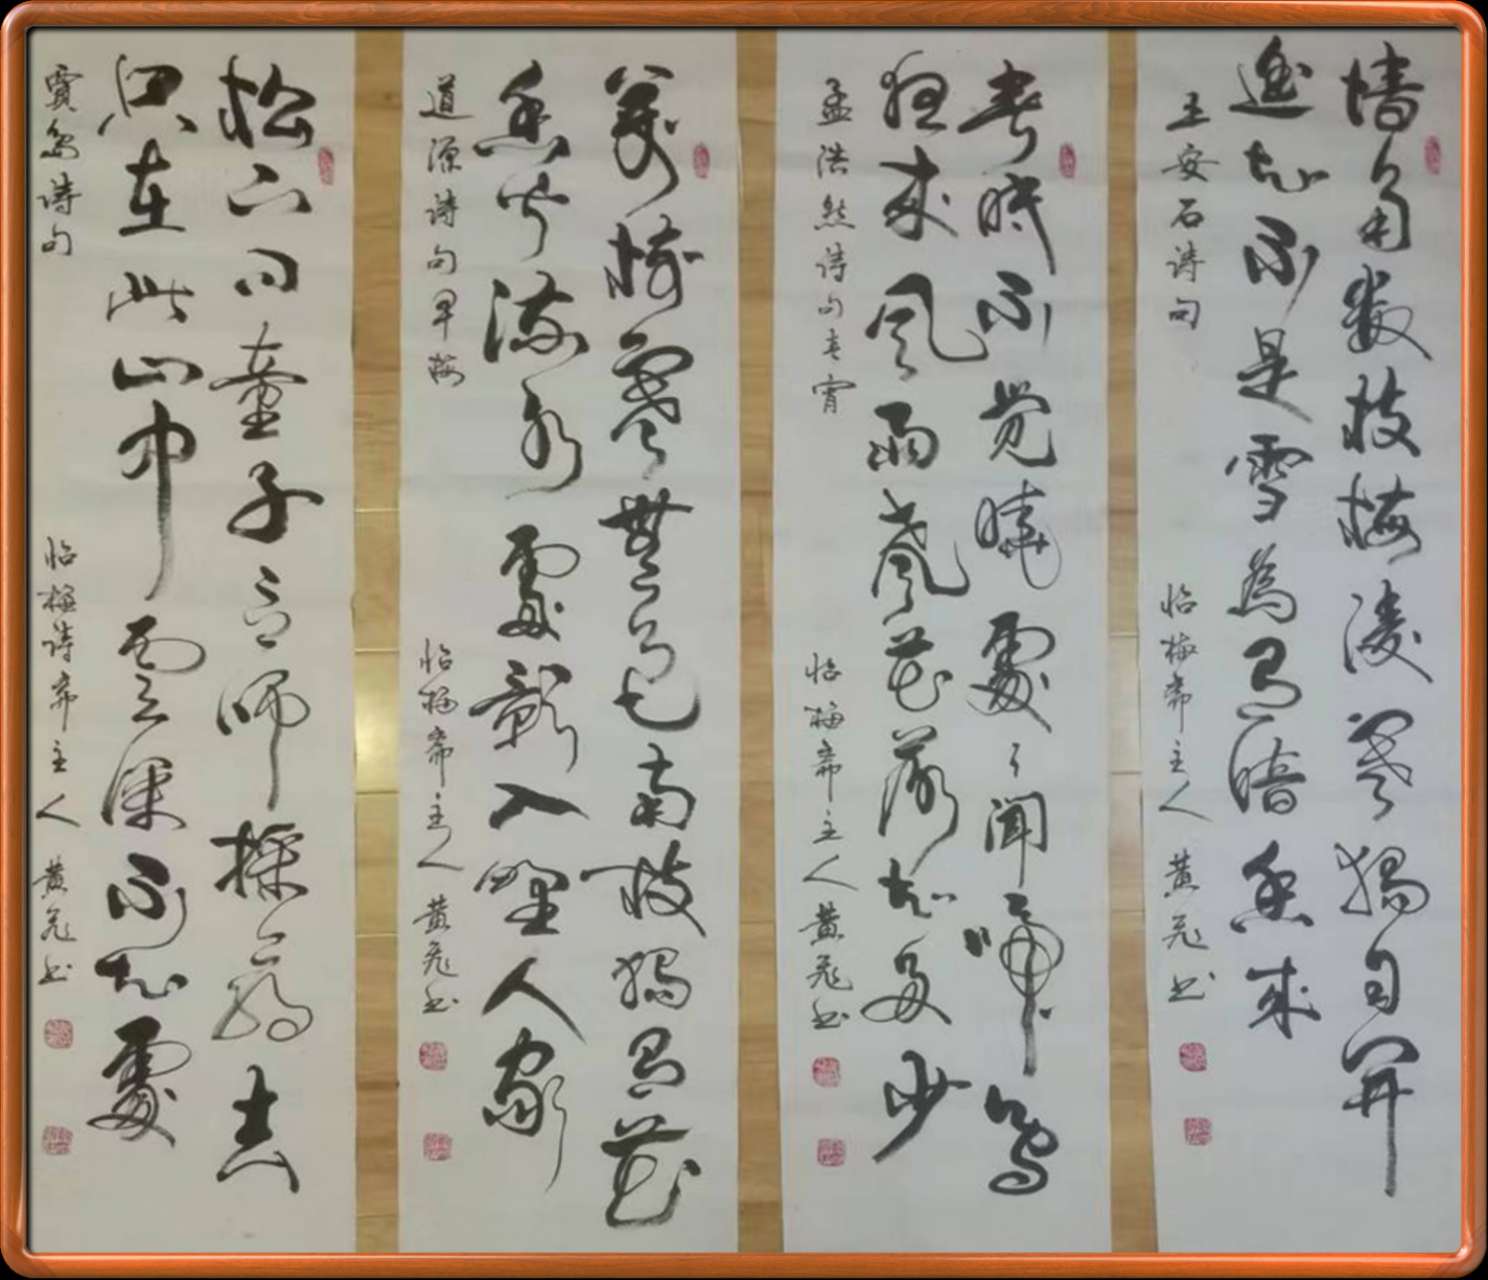 墙角数枝梅凌寒獨自開
遥知不是雪為有暗香来
王安石诗句 怡梅斋主人 黄书
春眠不觉晓處々闻啼鸟
夜来风雨聲花落知多少
孟浩然诗句春宵 怡梅斋主人 黄书
萬樹寒無色南枝獨有花
香闻流水處影入野人家
道源诗句早梅 怡梅斋主人 黄书
松下问童子言师採药去
只在此山中雲深不知處
賈岛诗句 怡梅诗斋主人 黄书